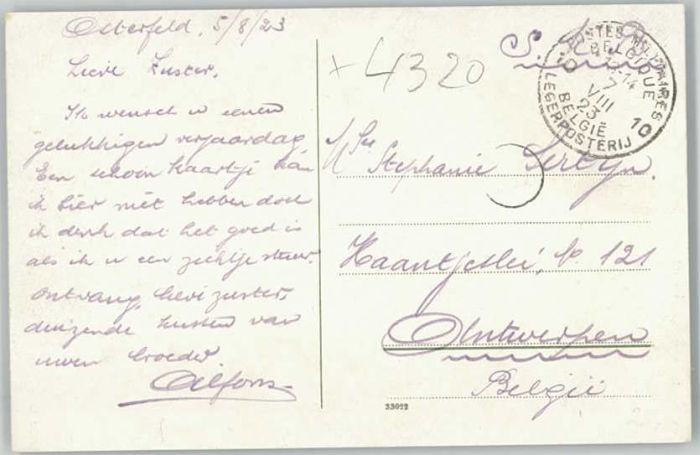 Osterfeld, 5/8/23
Lieve Zuster.
Ik wensch u eenen
gelukkigen verjaardag
Een schoon kaartje kan
ik hier niet hebben doch
ik denk dat het goed is
als ik u een zichtje stuur
ontvang, lieve zuster,
duizende kussen van
uwen broeder
Alfons
+ 4320
S. M.
POSTES MILITAIRES
BELGIQUE
14
7
VIII
23
BELGIË
LEGERPOSTERIJ
10
Stephanie Serlyn.
Haantjeslei, No 121
Antwerpen
België
33022